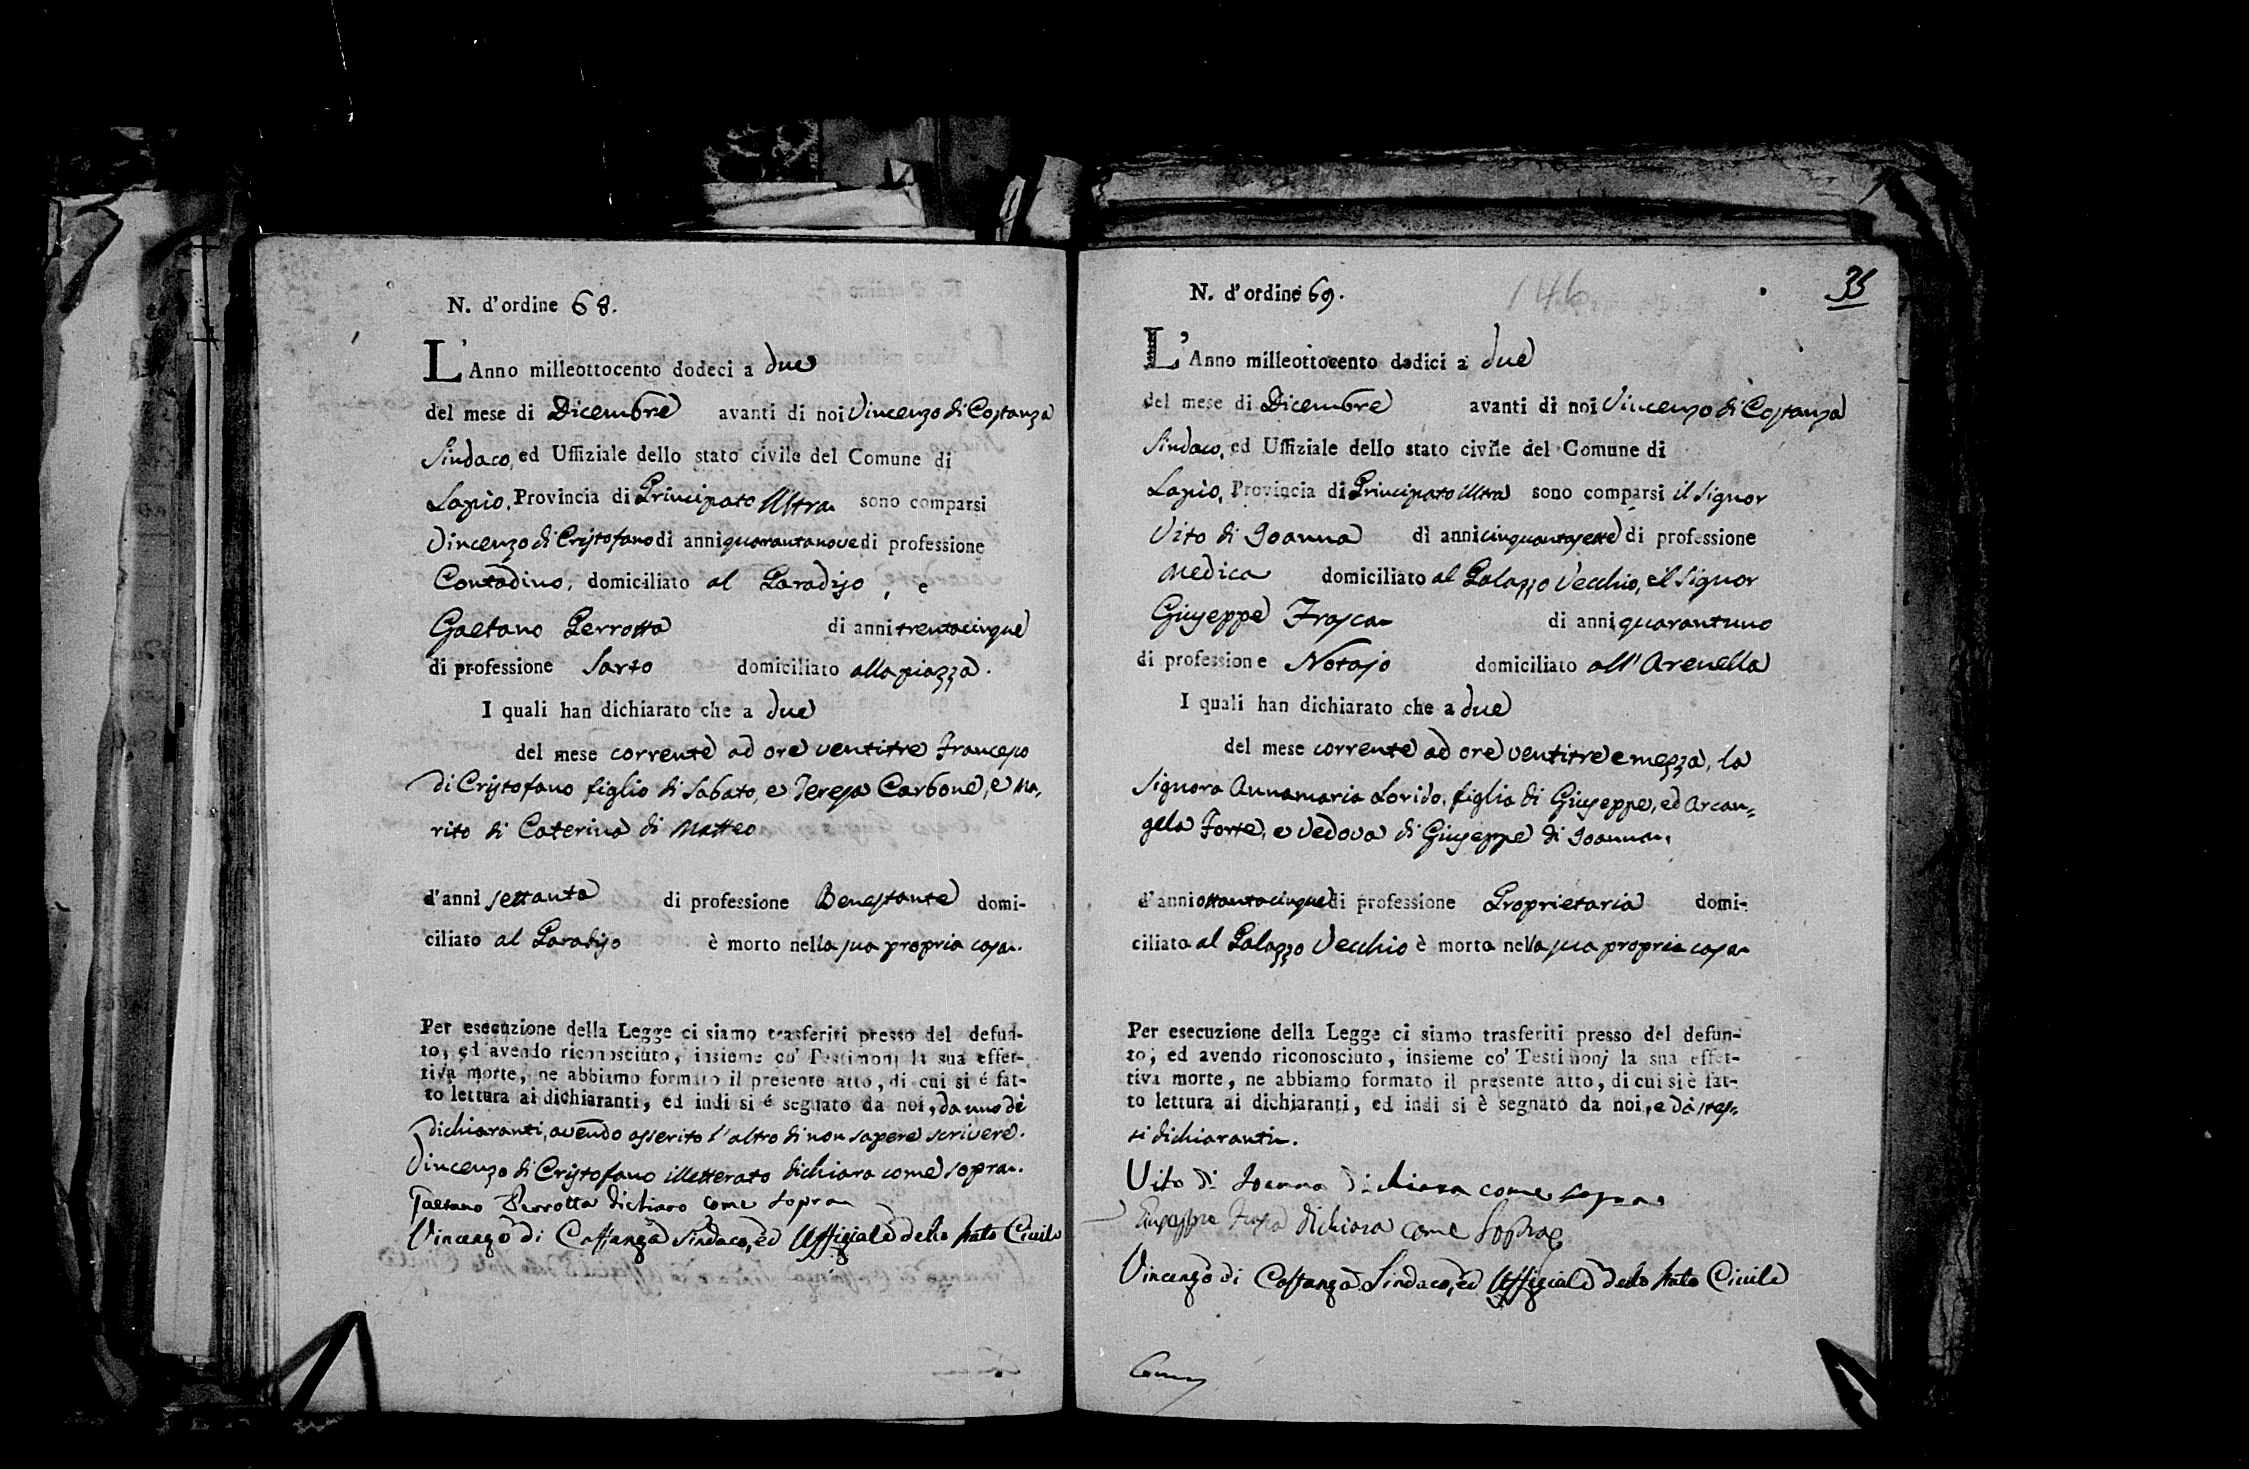 N. d'ordine 68.
L'Anno milleottocento dodeci a due
del mese di Dicembre avanti di noi Vincenzo di Costanza
Sindaco, ed Uffiziale dello stato civile del Comune di
Lapio, Provincia di Principato Ultra sono comparsi
Vincenzo di Cristofano di anni quarantanove di professione
Contadino, domiciliato al Paradiso, e
Gaetano Perrotta di anni trentacinque
di professione Sarto domiciliato alla piazza.
I quali han dichiarato che a due
del mese corrente ad ore ventitre Francesco
di Cristofano figlio di Sabato, e Teresa Carbone, e Ma,
rito di Caterina di Matteo
d'anni settanta di professione Benestante domi-
ciliato al Paradiso è morto nella sua propria casa.
Per esecuzione della Legge ci siamo trasferiti presso del defun-
to, ed avendo riconosciuto, insieme co' Testimonj la sua effet-
tiva morte, ne abbiamo formato il presente atto, di cui si é fat-
to lettura ai dichiaranti, ed indi si é segnato da noi, da uno de
dichiaranti, avendo asserito l'altro di non sapere scrivere.
Vincenzo di Cristofano illetterato dichiara come sopra.
Gaetano Perrotta dichiaro come sopra
Vincenzo di Costanza Sindaco, ed Uffiziale dello stato Civile
35
146
N. d'ordine 69.
L'Anno milleottocento dodici a due
del mese di Dicembre avanti di noi Vincenzo di Costanza
Sindaco, ed Uffiziale dello stato civile del Comune di
Lapio, Provincia di Principato Ultra sono comparsi il Signor
Vito di Joanna di anni cinquantasette di professione
Medica domiciliato al Palazzo Vecchio, e il Signor
Giuseppe Frasca di anni quarantuno
di professione Notajo domiciliato all'Arenella
I quali han dichiarato che a due
del mese corrente ad ore ventitre e mezza, la
Signora Annamaria Lorido, figlia di Giuseppe, ed Arcan=
gela Forte, e Vedova di Giuseppe di Joanna,
d'anni ottantacinque di professione Proprietaria domi-
ciliata al Palazzo Vecchio è morta nella sua propria casa
Per esecuzione della Legge ci siamo trasferiti presso del defun-
to; ed avendo riconosciuto, insieme co' Testimonj la sua effet-
tiva morte, ne abbiamo formato il presente atto, di cui si è fat-
to lettura ai dichiaranti, ed indi si è segnato da noi, e da stes=
si dichiaranti.
Vito di Joanna dichiara come sopra
Giuseppe Frasca dichiara come Sopra
Vincenzo di Costanza Sindaco, ed Uffiziale dello stato Civile